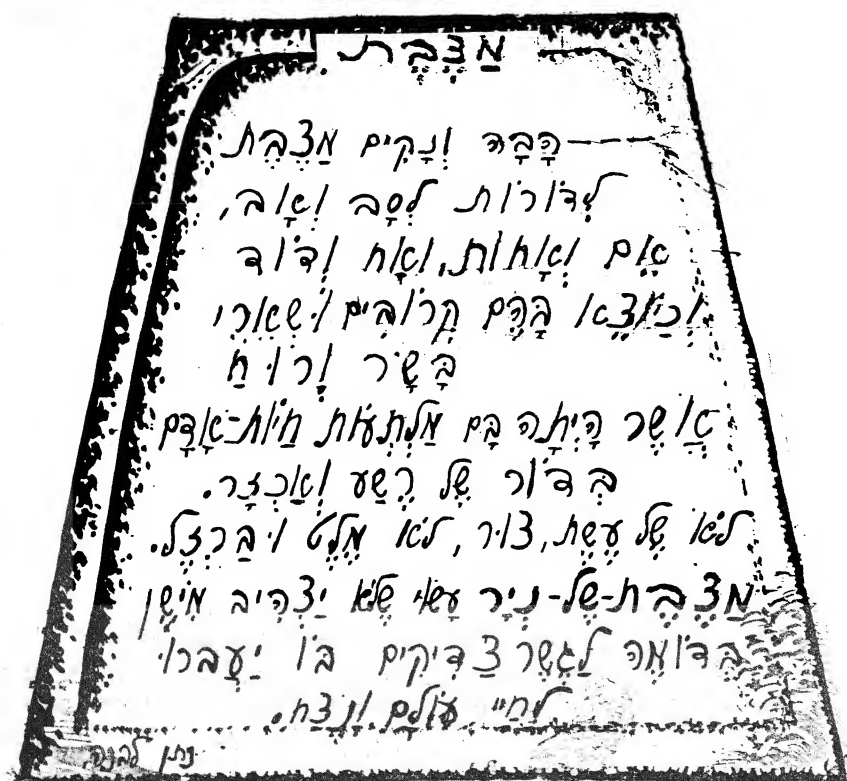 מַצֶּבֶת
הָבָה וְנָקִים מַצֶּבֶת
לְדוֹרוֹת לְסָב וְאָב,
אֵם וְאָחוֹת, וְאָח וְדוֹד
וְכַיּוֹצֵא בָּהֶם קְרוֹבִים וּשְׁאֵרֵי
בָּשָׂר וְרוּחַ
אֲשֶׁר הָיְתָה בָּם מַלְתְּעוֹת חַיּוֹת-אָדָם
בְּדוֹר שֶׁל רֶשַׁע וְאַכְזָר.
לֹא שֶׁל עֶשֶׁת, צוּר, לֹא מֶלֶט וּבַרְזֶל.
מַצֶּבֶת-שֶׁל-נְיָר עָשׂוּי שֶׁלֹּא יַצְהִיב מִיֹּשֶׁן
בְּדוֹמֶה לַגֶּשֶׁר צַדִּיקִים בּוֹ יַעֲבֹרוּ
לְחַיֵּי עוֹלָם וָנֶצַח.
נתן